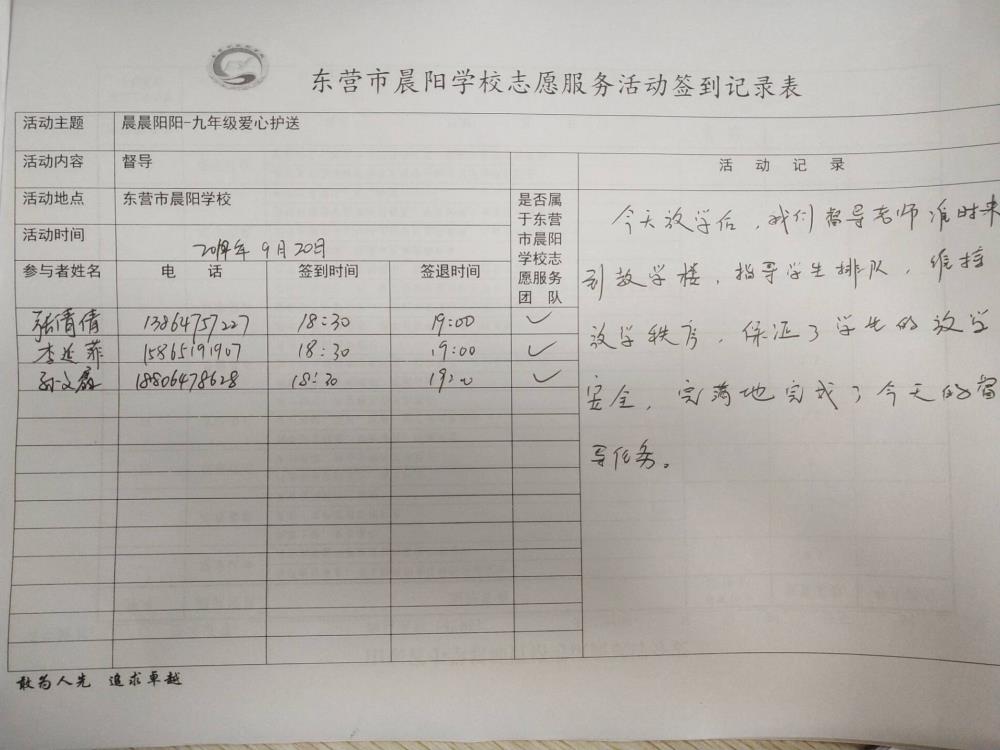 东营市晨阳学校志愿服务活动签到记录表
活动主题 晨晨阳阳-九年级爱心护送
活动内容 督导
活动地点 东营市晨阳学校
活动时间 9月20日
参与者姓名 电 话 签到时间 签退时间
是否属
于东营
市晨阳
学校志
愿服务
团 队
张倩倩 13864757227 18:30 19:00 ✓
李延菲 15865191907 18:30 19:00 ✓
孙文 18806478628 18:30 19:00 ✓
活 动 记 录
今天放学后,我们督导老师准时来
到教学楼,指导学生排队,维持
放学秩序,保证了学生的放学
安全,完满地完成了今天的督
导任务。
敢为人先 追求卓越